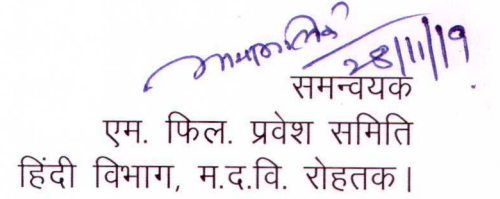 28/11/19
समन्वयक
एम. फिल. प्रवेश समिति
हिंदी विभाग, म.द.वि. रोहतक।